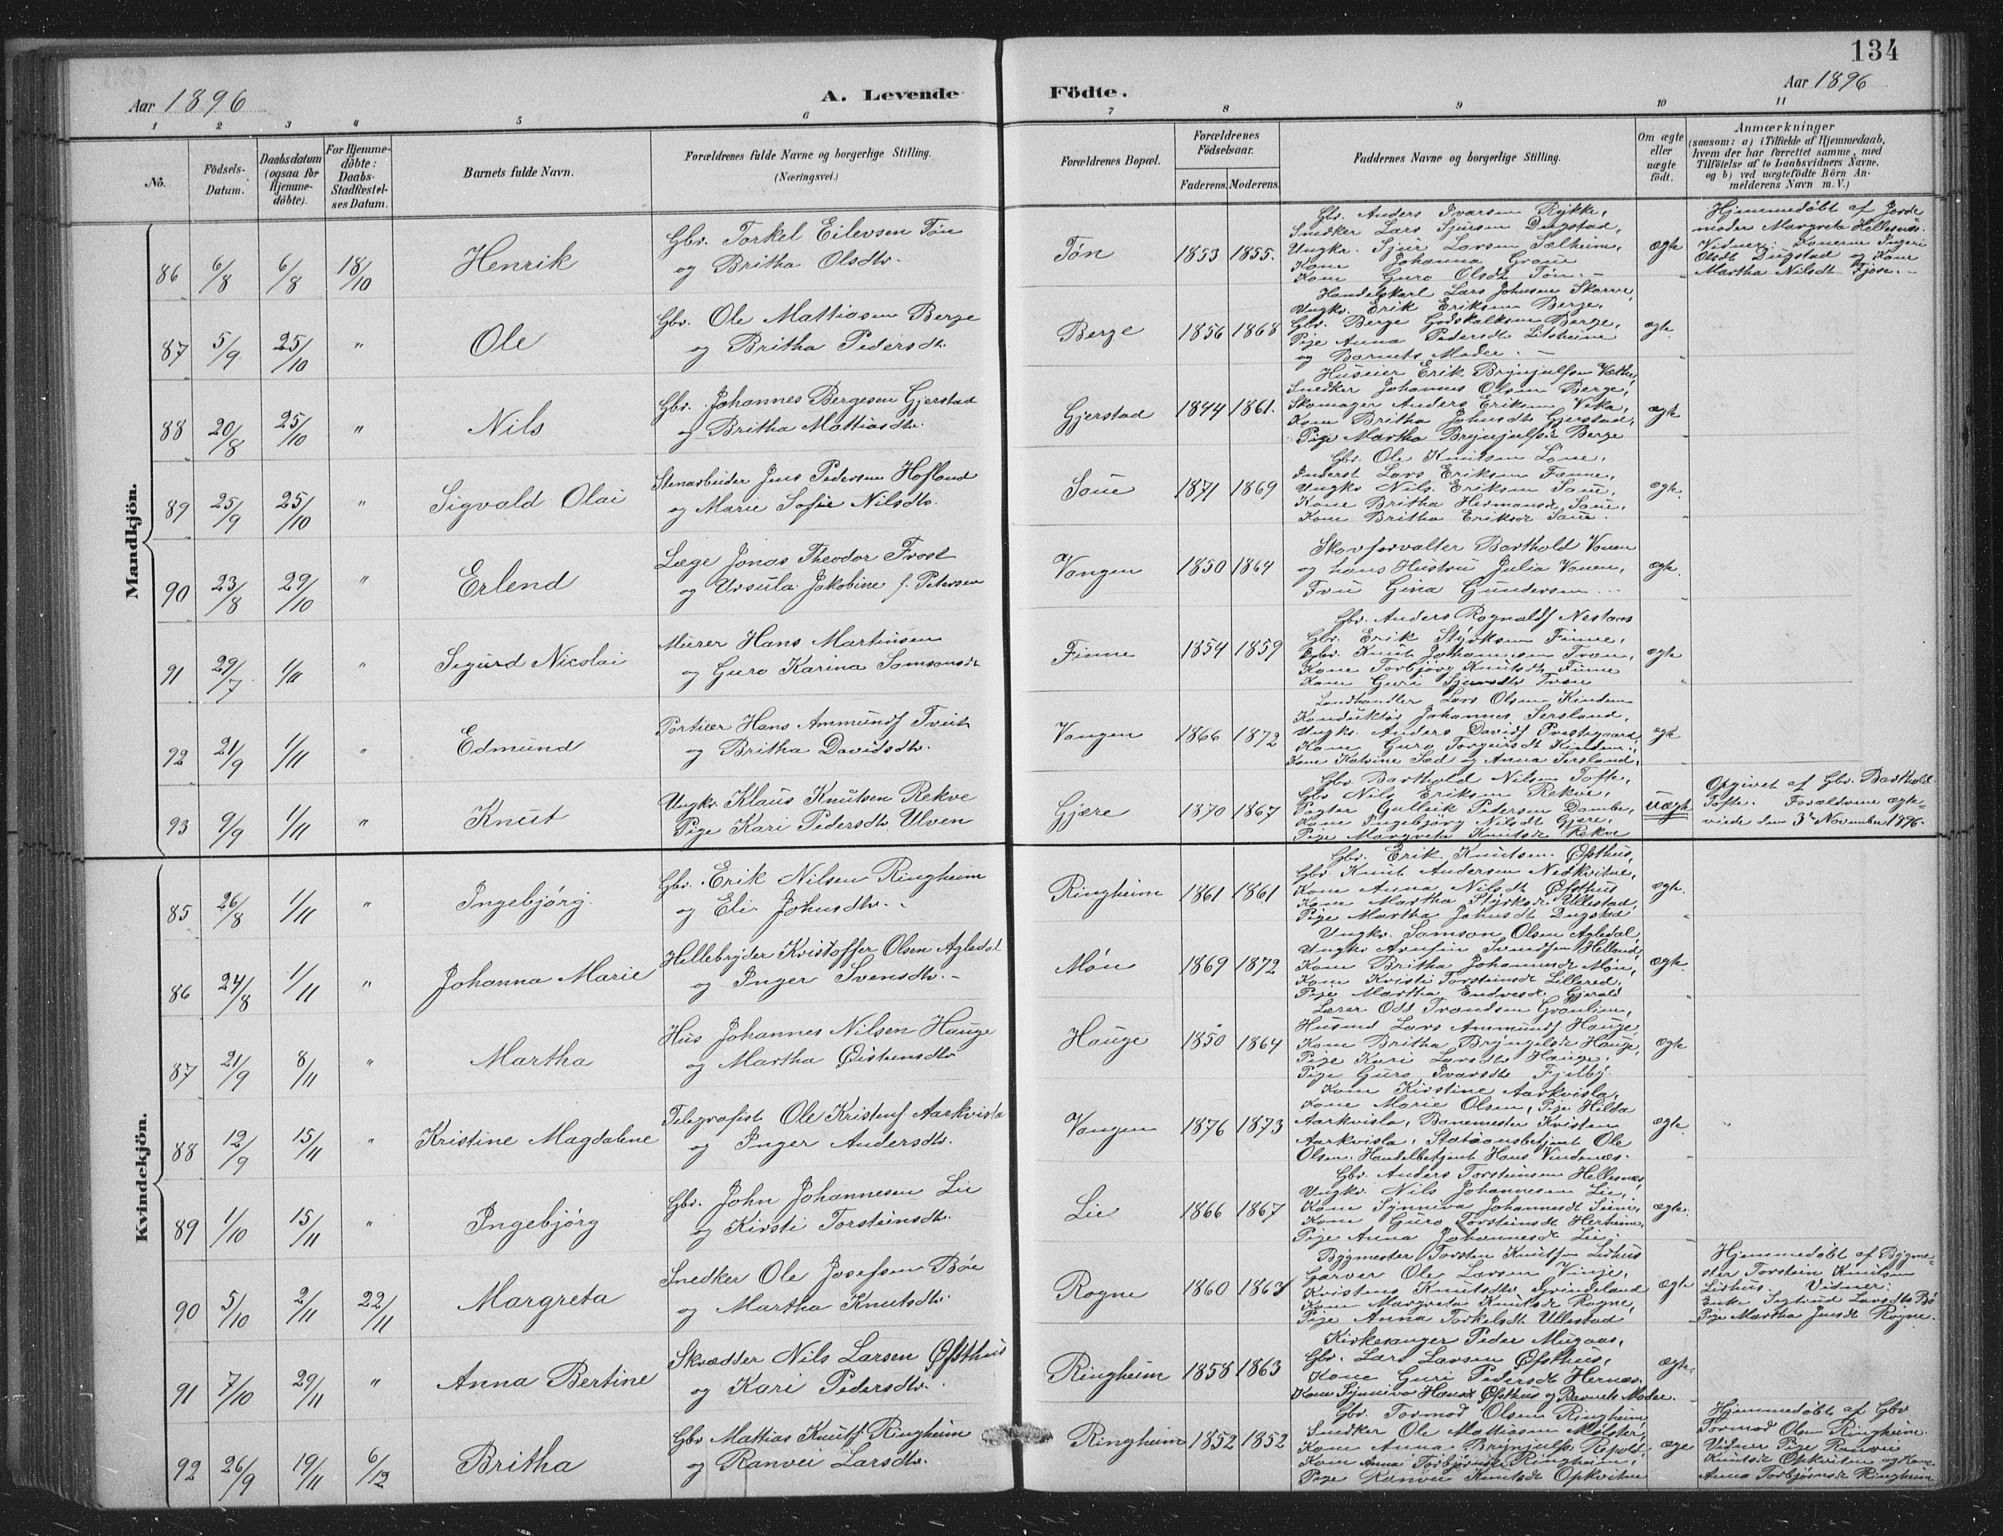 134
Aar 1896
A. Levende
Födte.
Aar 1896
1 2 3 4 5 6 7 8 9 10 11
No.
Födsels-
Datum.
Daabsdatum
(ogsaa for
Hjemme-
döbte).
For Hjemme-
döbte:
Daabs-
Stadfæstel-
ses Datum.
Barnets fulde Navn.
Forældrenes fulde Navne og borgerlige Stilling.
(Næringsvei.)
Forældrenes Bopæl.
Forældrenes
Födselsaar.
Faderens. Moderens.
Faddernes Navne og borgerlige Stilling.
Om ægte
eller
uægte
födt.
Anmærkninger
(saasom: a) i Tilfælde af Hjemmedaab,
hvem der har forrettet samme, med
Tilföielse af to Daabsvidners Navne,
og b) ved uægtefödte Börn An-
melderens Navn m. V.)
Mandkjön.
86 6/8 6/8 18/10 Henrik
Gbr. Torkel Eilevsen Tøn
og Britha Olsdtr.
Tøn 1853 1855.
Gbr. Anders Ivarsen Rykke,
Snedker Lars Sjursen Dugstad,
Ungkr. Sjur Larsen Sælheim,
Kone Johanna Graue
Kone Guro Olsdt Tøn. —
ægte
Hjemmedøbt af Jorde
moder Margreta Hellesnes.
Vidner: Konerne Ingeri
Olsdt Dugstad og Kone
Martha Nilsdt Fjose. —
87 5/9 25/10 " Ole
Gbr. Ole Mattiasen Berge
og Britha Pedersdtr.
Berge 1856 1868
Handelskarl Lars Johnsen Skorve,
Ungkr. Erik Eriksen Berge,
Gbr. Berge Godskalksen Berge,
Pige Anna Pedersdt Litsheim
og Barnets Moder. —
ægte.
88 20/8 25/10 " Nils
Gbr. Johannes Bergesen Gjerstad
og Britha Mattiasdtr.
Gjerstad 1844 1861.
Huseier Erik Brynjulfsen Væthe,
Snedker Johannes Olsen Berge,
Skomager Anders Eriksen Vika,
Kone Britha Johnsdt Gjerstad,
Pige Martha Brynjulfsdt Berge
ægte
89 25/9 25/10 " Sigvald Olai
Stenarbeider Jens Pedersen Hofland
og Marie Sofie Nilsdtr.
Saue 1871 1869
Gbr. Ole Knutsen Løne,
Inderst Lars Eriksen Fenne,
Ungkr Nils Eriksen Saue,
Kone Britha Hermansdt Saue,
Kone Britha Eriksdt Saue.
ægte.
90 23/8 29/10 " Erlend
Læge Jonas Theodor Frost
og Ursula Jakobine f. Petersen
Vangen 1850 1864
Skovforvalter Barthold Vonen
og hans Hustru Julia Vonen,
Fru Gina Gundersen
ægte.
91 29/7 1/11 " Sigurd Nicolai
Murer Hans Martinsen
og Guro Karina Samsonsdt
Finne 1854 1859
Gbr. Anders Rognaldsf Nestaas
Gbr. Erik Styrksen Finne,
Gbr. Knut Johannesen Træn,
Kone Torbjørg Knutsdt Finne
Kone Guri Sjursdtr Træn
ægte
92 21/9 1/11 " Edmund
Portier Hans Ammundsf Tveit
og Britha Davidsdtr.
Vangen 1866 1872
Landhandler Lars Olsen Kindem
Konduktør Johannes Sersland,
Ungkr. Anders Davidsf Prestegaard,
Kone Guro Torgersdt Kindem,
Kone Katrine Sæd og Anna Sersland.
ægte
93 9/9 1/11 " Knut
Ungkr. Klaus Knutsen Rekve
Pige Kari Pedersdtr Ulven
Gjære 1870 1867
Gbr Barthold Nilsen Tofte,
Gbr Nils Eriksen Rekve,
Pagter Gulleik Pedersen Dambe,
Kone Ingebjørg Nilsdt Gjære,
Pige Margreta Knutsdt Rekve
uægte
Opgivet af Gbr. Barthold
Tofte. Forældrene ægte-
viede den 3die November 1896.
Kvindekjön.
85 26/8 1/11 " Ingebjørg
Gbr. Erik Nilsen Ringheim
og Eli Johnsdtr.
Ringheim 1861 1861
Gbr. Erik Knutsen Øfsthus,
Gbr Knut Andersen Nedkvitne,
Kone Anna Nilsdt Øfsthus
Kone Martha Styrksdt Ullestad,
Pige Martha Johnsdt Dugstad
ægte.
86 24/8 1/11 " Johanna Marie
Hellebryder Kristoffer Olsen Agledal
og Inger Svensdtr. —
Møn 1869 1872
Ungkr. Samson Olsen Agledal,
Ungkr Arnfin Svendsen Helland,
Kone Britha Johannesdt Møn,
Kone Kristi Torsteinsdt Lillered,
Pige Martha Endresdt Gjerald
ægte.
87 21/9 8/11 " Martha
Hus Johannes Nilsen Hauge
og Martha Øistensdtr
Hauge 1850 1864
Lærer Odd Trondsen Grønlien,
Husmd Lars Ammundsf Hauge,
Kone Britha Bryngelsdt Hauge,
Pige Kari Larsdtr Hauge,
Pige Guro Ivarsdtr Fjelby.
ægte
88 12/9 15/11 " Kristine Magdalene
Telegrafist Ole Kristensf Aarkvisla
og Inger Andersdtr.
Vangen 1876 1873
Kone Kirstine Aarkvisla,
Kone Marie Olsen, Pige Hilda
Aarkvisla, Banemester Kristen
Aarkvisla, Stationsbetjent Ole
Olsen. Handelbetjent Hans Vindenæs.
ægte.
89 1/10 15/11 " Ingebjørg
Gbr. John Johannesen Lie
og Kirsti Torsteinsdtr.
Lie 1866 1867
Gbr. Anders Torsteinsen Hellesnes,
Ungkr. Nils Johannesen Lie,
Kone Synniva Johannesdt Seim,
Kone Guro Torsteinsdt Herheim,
Pige Anna Johannesdt Lie.
ægte.
90 5/10 2/11 22/11 Margreta
Snedker Ole Josefsen Bøe
og Martha Knutsdtr.
Rogne 1860 1863
Bygmester Torsten Knutsen Lirhus
Garver Ole Larsen Vinje,
Kristens Knutsdtr Grindeland
Kone Margreta Knutsdt Rogne,
Pige Anna Torkelsdt Ullestad
ægte
Hjemmedøbt af Bygme-
ster Torstein Knutsen
Lirhus. Vidner:
Enke Sigtrud Larsdtr Bø
Pige Martha Jensdt Rogne.
91 7/10 29/11 " Anna Bertine
Skrædder Nils Larsen Øfsthus
og Kari Pedersdtr.
Ringheim 1858 1863
Kirkesanger Peder Mugaas,
Gbr. Lars Larsen Øfsthus,
Kone Guri Pedersdt Hernes.
Kone Synniva Hansdt Øfsthus og Barnets Moder.
ægte
92 26/9 19/11 6/12 Britha
Gbr Mattias Knutsf Ringheim
og Ranvei Larsdtr.
Ringheim 1852 1852
Gbr. Tormod Olsen Ringheim,
Snedker Ole Mattiasen Mølster,
Kone Anna Brynjulfsdt Repål,
Kone Anna Torbjørnsdt Ringheim,
Pige Ranvei Knutsdt Opkvitne
æge
Hjemmedøbt af Gbr
Tormod Olsen Ringheim
Vidner Pige Ranvei
Knutsdt Opkvitne og Kone
Anna Torbjørnsdt Ringheim